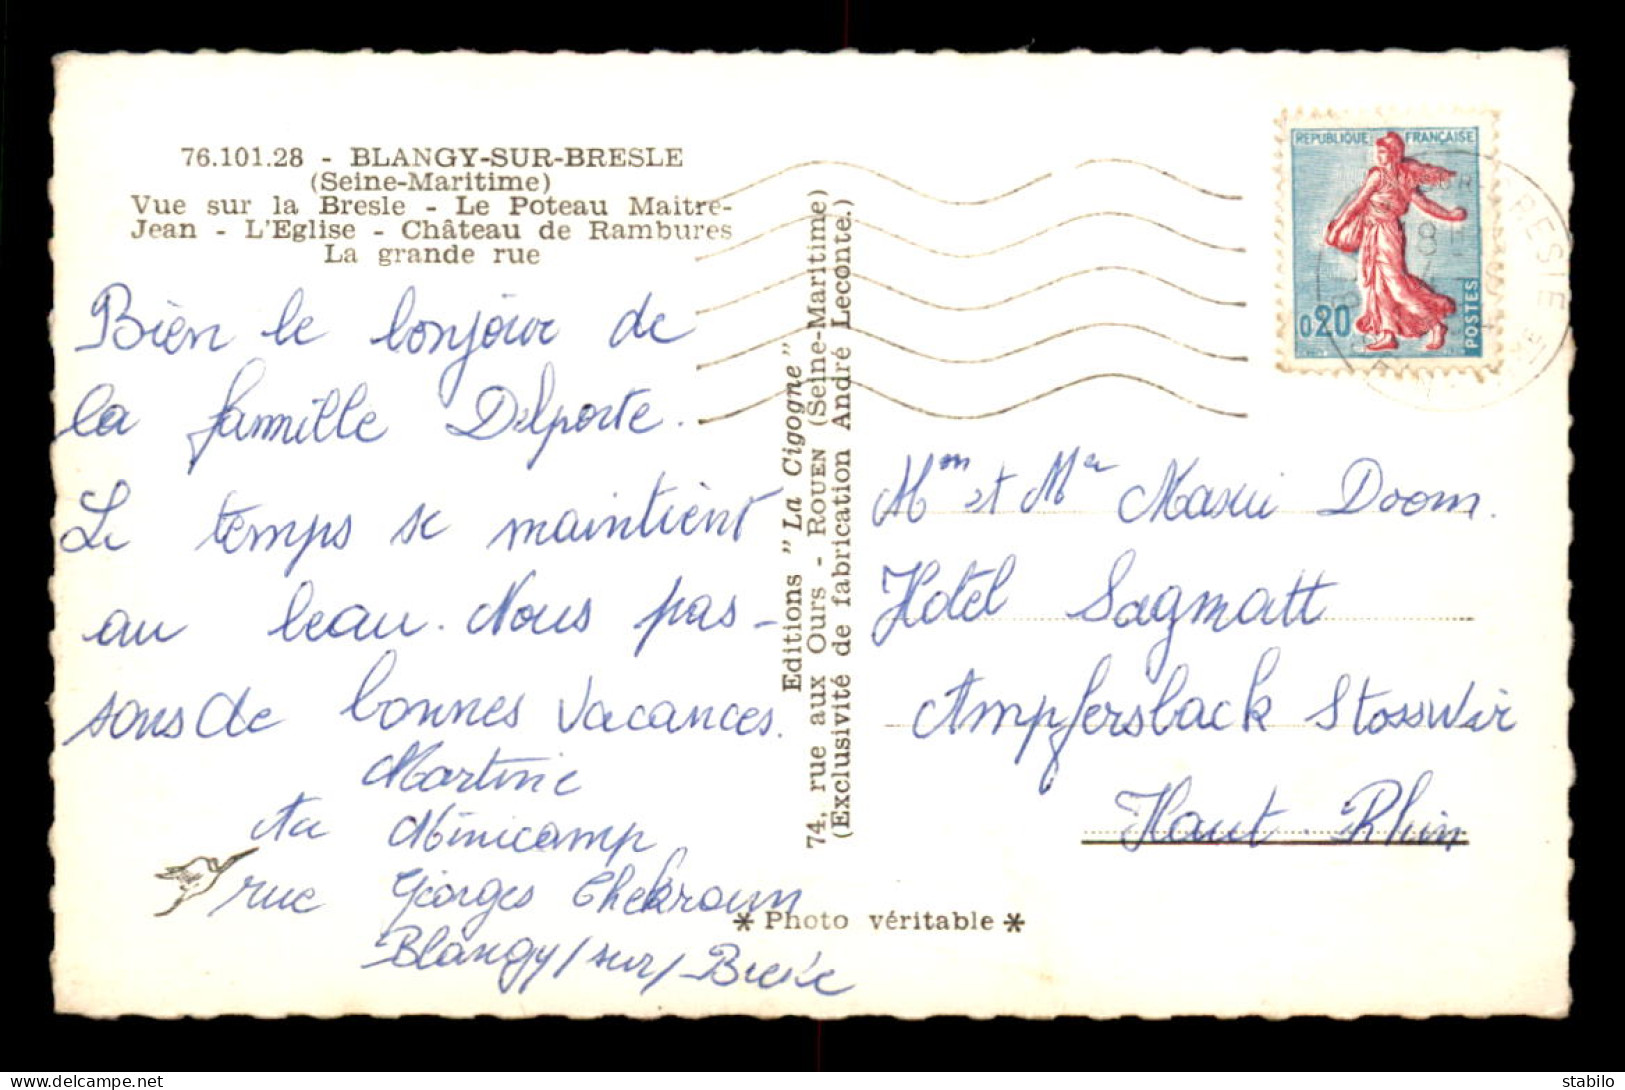 76.101.28 - BLANGY-SUR-BRESLE
(Seine-Maritime)
Vue sur la Bresle - Le Poteau Maitre-
Jean - L'Eglise - Château de Rambures
La grande rue
Bien le bonjour de
la famille Delporte.
Le temps se maintient
au beau. Nous pas-
sons de bonnes vacances.
Martine
Au Minicamp
rue Georges Thekroun
Blangy/sur/Bresle
Editions "La Cigogne"
74, rue aux Ours - ROUEN (Seine-Maritime)
(Exclusivité de fabrication André Leconte.)
* Photo véritable *
REPUBLIQUE FRANÇAISE
0,20
POSTES
Mm et Mr Doom.
Hotel Sagmatt
Ampfersback Stosswir
Haut-Rhin
stabilo